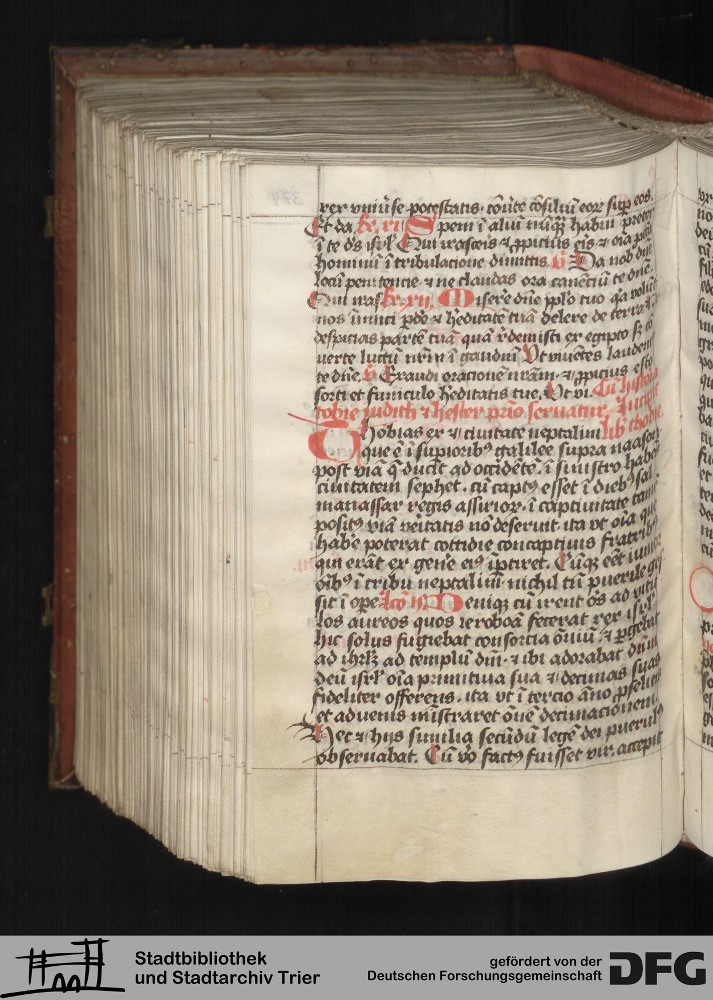 rex vniu͛se potestatis · con̄ute cōsiliū eoꝝ sup̄ eos
Et da Re. xi Spem ī aliū nūq̄ habui preter
ī te ds̄ isrl̄ Qui irasceris ⁊ ꝓpicius eris ⁊ oīa pctā
hominū ī tribulacione dimittis. v̄ Da nob dn̄e
locū penitencie · ⁊ ne claudas ora canenciū te dn̄e.
Qui iras Re. xii. Misere͛ dn̄e pplo tuo q̄a volūt
nos īimici pde͛ ⁊ h̄editatē tuā delere ne
despicias partē tuā quā r̄demisti ex egipto ſꝫ cō
uerte luctū nr̄m ī gaudiū Vt viuētes laudem
te dn̄e. v̄ Exaudi oracionē nr̄am · ⁊ ꝓpicius esto
sorti et funiculo h̄editatis tue. Vt vi. Cū hystoria
tobie iudith ⁊ hester p̄us seruatur. Incipit
lib̄ thobie.
Thobias ex ⁊ ciuitate neptalim
que ē ī supioribꝰ galilee supra naason
post viā q̄ ducit ad occidētē · ī sinistro habēs
ciuitatem sephet · cū captꝰ esset ī diebꝰ sal
manassar regis assirioꝝ · ī captiuitate tamē
positꝰ viā ueritatis nō deseruit ita vt oīa que
hab̄e poterat cottidie concaptiuis fratribꝰ
qui erāt ex gen̄e eiꝰ īptiret. Cūqꝫ eēt iunior
oībꝰ ī tribu neptalim nichil tn̄ puerile ges
sit ī ope͛ Lcō ii. Denique cū irent oēs ad vitu
los aureos quos ieroboā fecerat rex isrl̄
hic solus fugiebat consorcia ōniū ⁊ p̄gebat
ad ihrlꝫ ad templū dn̄i · ⁊ ibi adorabat dn̄m
deū isrl̄ oīa primitiua sua ⁊ decimas suas
fideliter offerens · ita vt ī tercio āno ꝓselitis
et aduenis mīstraret ōnē decimacionem
Hec ⁊ hijs similia secūdū legē dei puerulꝰ
obseruabat. Cū vo͛ factꝰ fuisset vir · accepit
Stadtbibliothek
und Stadtarchiv Trier
gefördert von der
Deutschen Forschungsgemeinschaft
DFG